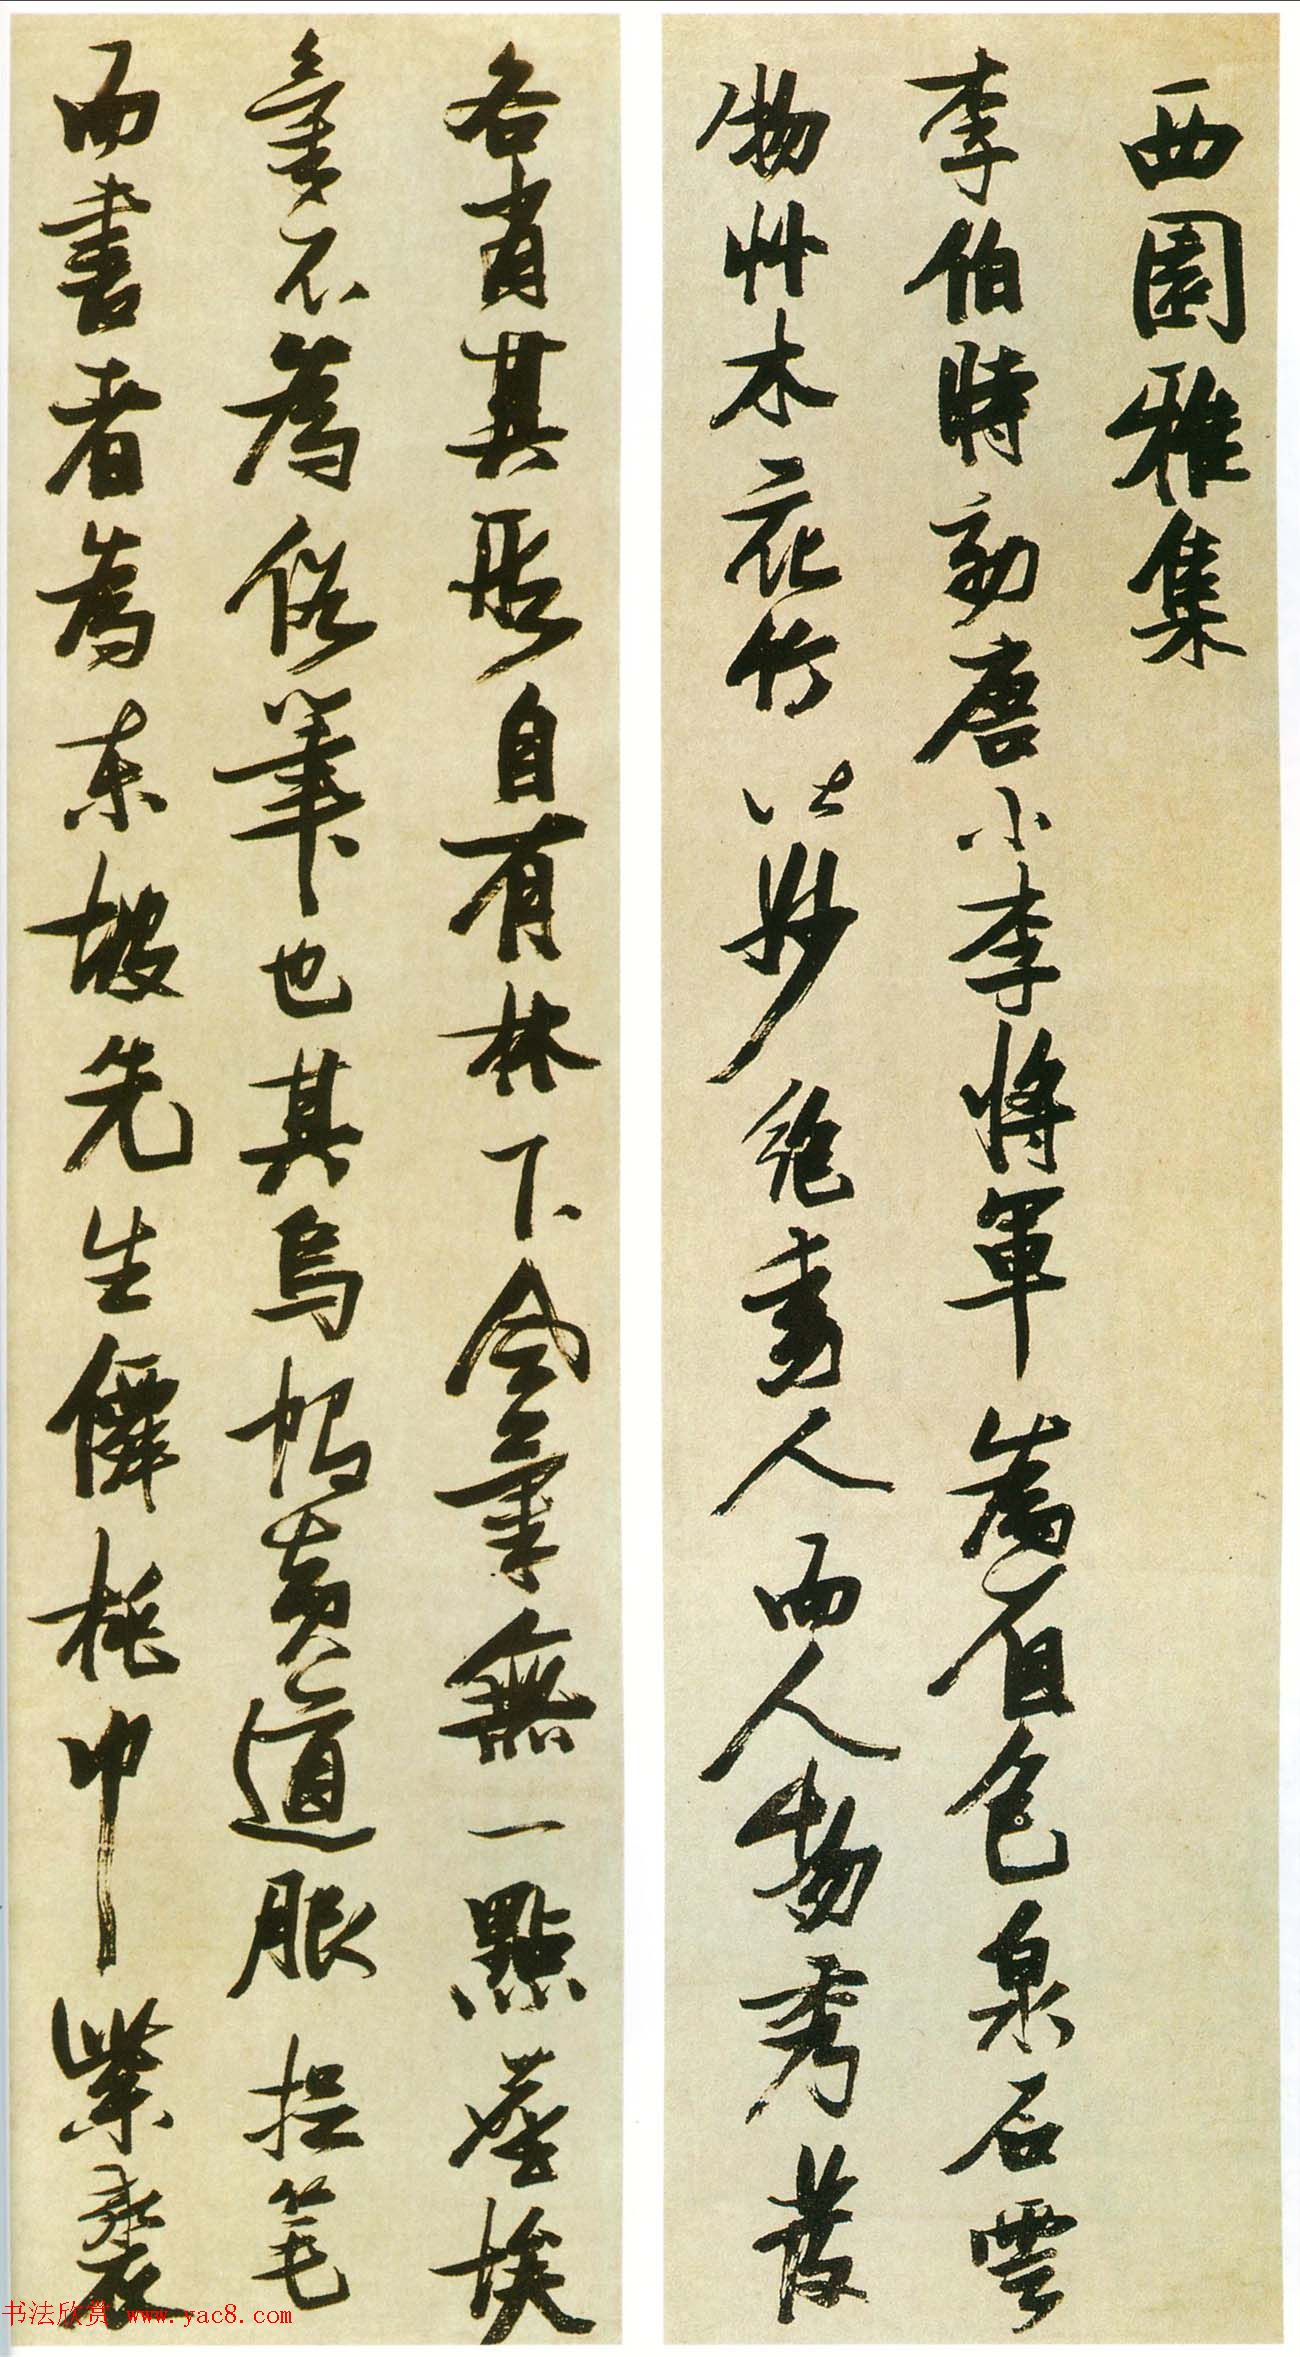 西園雅集
李伯時効唐小李將軍為著色泉石雲
物艸木花竹皆妙絶動人而人物秀發
各肖其形自有林下風章無一點塵埃
氣不為俗筆也其烏帽黃道服捉筆
而書者為東坡先生僊桃巾紫裘
书法欣赏 www.yac8.com